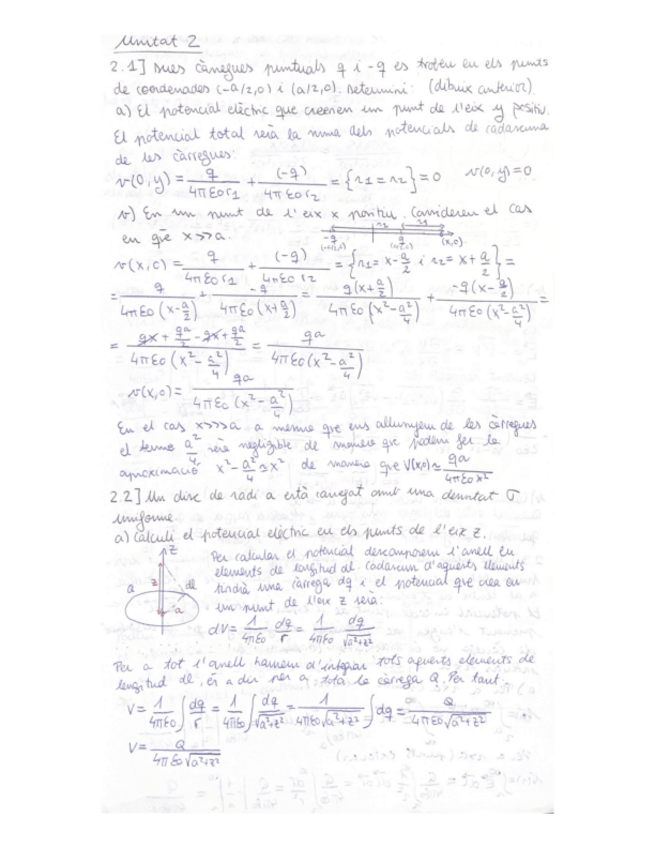 Unitat 2
2.1] Dues càrregues puntuals q i -q es troben en els punts
de coordenades (-a/2,0) i (a/2,0). Determini: (dibuix anterior).
a) El potencial elèctric que creen en un punt de l'eix y positiu.
El potencial total serà la suma dels potencials de cadascuna
de les càrregues:
v(0,y) = q/(4πε0r1) + (-q)/(4πε0r2) = {r1=r2} = 0 v(0,y)=0
b) En un punt de l'eix x positiu. Considereu el cas
en què x>>a.
-q (-a/2,0) q (a/2,0) r2 r1 (x,0)
v(x,0) = q/(4πε0r1) + (-q)/(4πε0r2) = {r1 = x - a/2 i r2 = x + a/2} =
= q/(4πε0(x - a/2)) + -q/(4πε0(x + a/2)) = q(x + a/2)/(4πε0(x² - a²/4)) + -q(x - a/2)/(4πε0(x² - a²/4)) =
= (qx + qa/2 - qx + qa/2)/(4πε0(x² - a²/4)) = qa/(4πε0(x² - a²/4))
v(x,0) = qa/(4πε0(x² - a²/4))
En el cas x>>>a a mesura que ens allunyem de les càrregues
el terme a²/4 serà negligible de manera que podem fer la
aproximació x² - a²/4 ≈ x² de manera que V(x,0) ≈ qa/(4πε0x²)
2.2] Un disc de radi a està carregat amb una densitat σ
uniforme
a) Calculi el potencial elèctric en els punts de l'eix z.
z
z
Q
dl
a
Per calcular el potencial descomposem l'anell en
elements de longitud dl. Cadascun d'aquests elements
tindrà una càrrega dq i el potencial que crea en
un punt de l'eix z serà:
dV = 1/(4πε0) dq/r = 1/(4πε0) dq/√(a²+z²)
Per a tot l'anell haurem d'integrar tots aquests elements de
longitud dl, és a dir per a tota la càrrega Q. Per tant:
V = 1/(4πε0) ∫ dq/r = 1/(4πε0) ∫ dq/√(a²+z²) = 1/(4πε0√(a²+z²)) ∫ dq = Q/(4πε0√(a²+z²))
V = Q/(4πε0√(a²+z²))